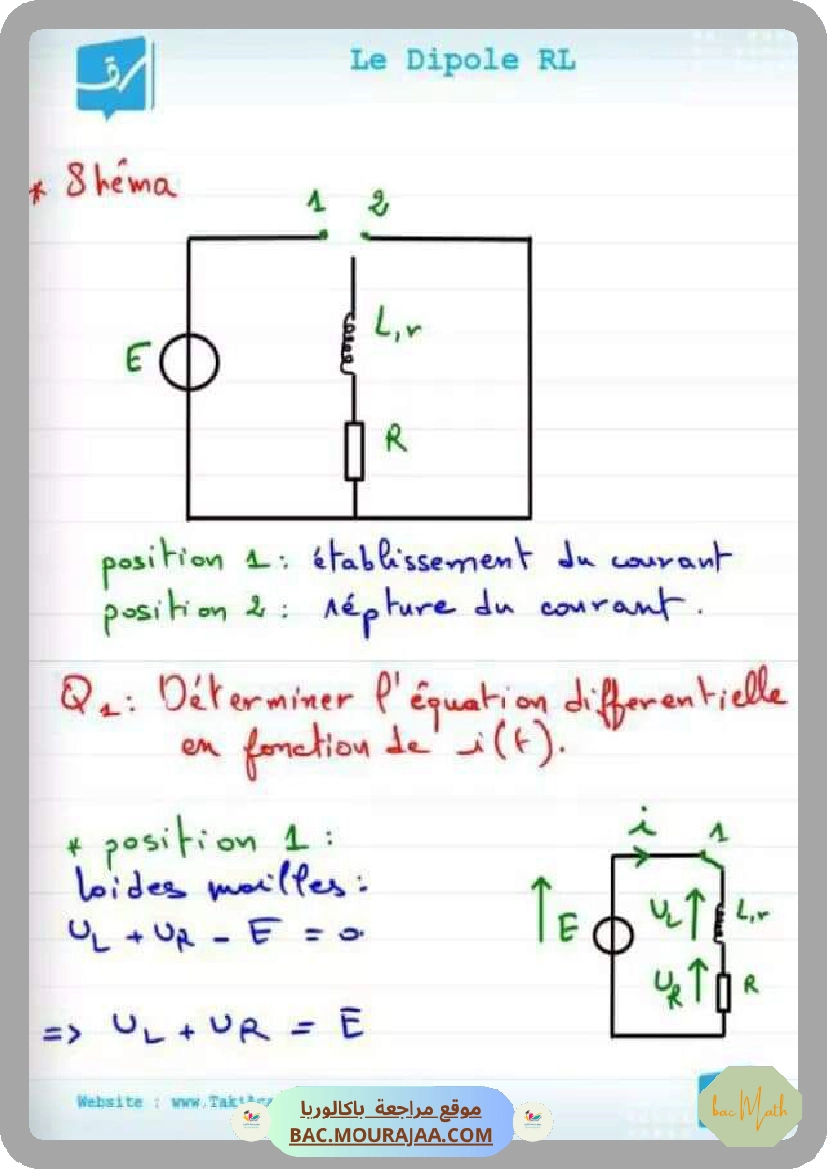 Le Dipole RL
* Shéma
1 2
L,r
E
R
position 1 : établissement du courant
position 2 : répture du courant.
Q1 : Déterminer l'équation differentielle
en fonction de i(t).
* position 1 :
loi des mailles :
UL + UR - E = 0
=> UL + UR = E
i 1
E UL L,r
UR R
Website : www.Takt
موقع مراجعة باكالوريا
BAC.MOURAJAA.COM
bac Math